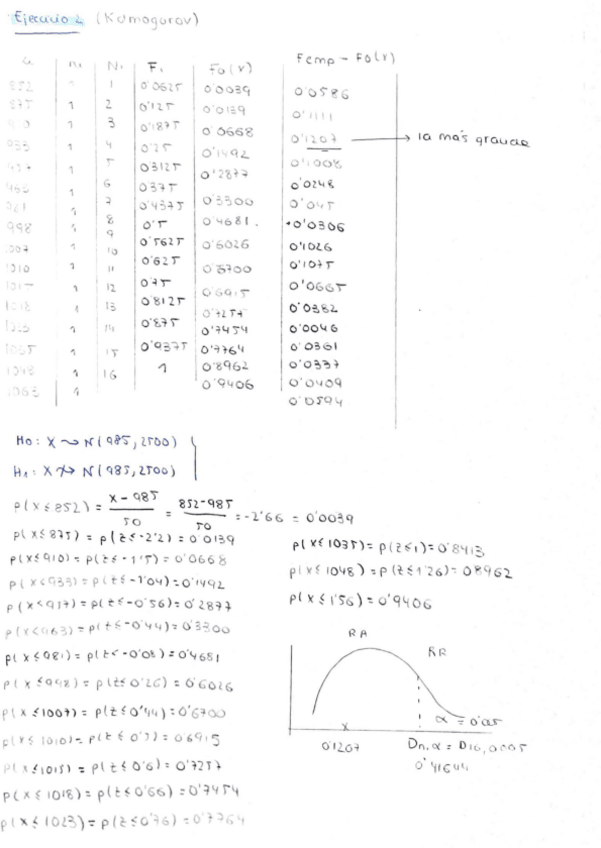 Ejercicio 2 (Kolmogorov)
ni Ni Fi Fo(x) Femp - Fo(x)
852 1 1 0'0625 0'0039 0'0586
875 1 2 0'125 0'0139 0'1111
910 1 3 0'1875 0'0668 0'1207 → la más grande
933 1 4 0'25 0'1492 0'1008
957 1 5 0'3125 0'2877 0'0248
963 1 6 0'375 0'3300 0'045
981 1 7 0'4375 0'4681 0'0306
998 1 8 0'5 0'6026 0'1026
1007 1 9 0'5625 0'6700 0'1075
1010 1 10 0'625 0'6915 0'0665
1015 1 11 0'7257 0'0382
1018 1 12 0'75 0'7454 0'0046
1023 1 13 0'8125 0'7764 0'0361
1035 1 14 0'875 0'0337
1048 1 15 0'9375 0'8962 0'0409
1063 1 16 1 0'9406 0'0594
H0: X ~ N(985, 2500)
H1: X ≁ N(985, 2500)
P(X ≤ 852) = x - 985 / 50 = 852 - 985 / 50 = -2'66 = 0'0039
P(X ≤ 875) = P(Z ≤ -2'2) = 0'0139
P(X ≤ 910) = P(Z ≤ -1'5) = 0'0668
P(X ≤ 933) = P(Z ≤ -1'04) = 0'1492
P(X ≤ 957) = P(Z ≤ -0'56) = 0'2877
P(X ≤ 963) = P(Z ≤ -0'44) = 0'3300
P(X ≤ 981) = P(Z ≤ -0'08) = 0'4681
P(X ≤ 998) = P(Z ≤ 0'26) = 0'6026
P(X ≤ 1007) = P(Z ≤ 0'44) = 0'6700
P(X ≤ 1010) = P(Z ≤ 0'5) = 0'6915
P(X ≤ 1015) = P(Z ≤ 0'6) = 0'7257
P(X ≤ 1018) = P(Z ≤ 0'66) = 0'7454
P(X ≤ 1023) = P(Z ≤ 0'76) = 0'7764
P(X ≤ 1035) = P(Z ≤ 1) = 0'8413
P(X ≤ 1048) = P(Z ≤ 1'26) = 0'8962
P(X ≤ 1'56) = 0'9406
RA RR
α = 0'05
0'1207 Dn,α = D16,0'05